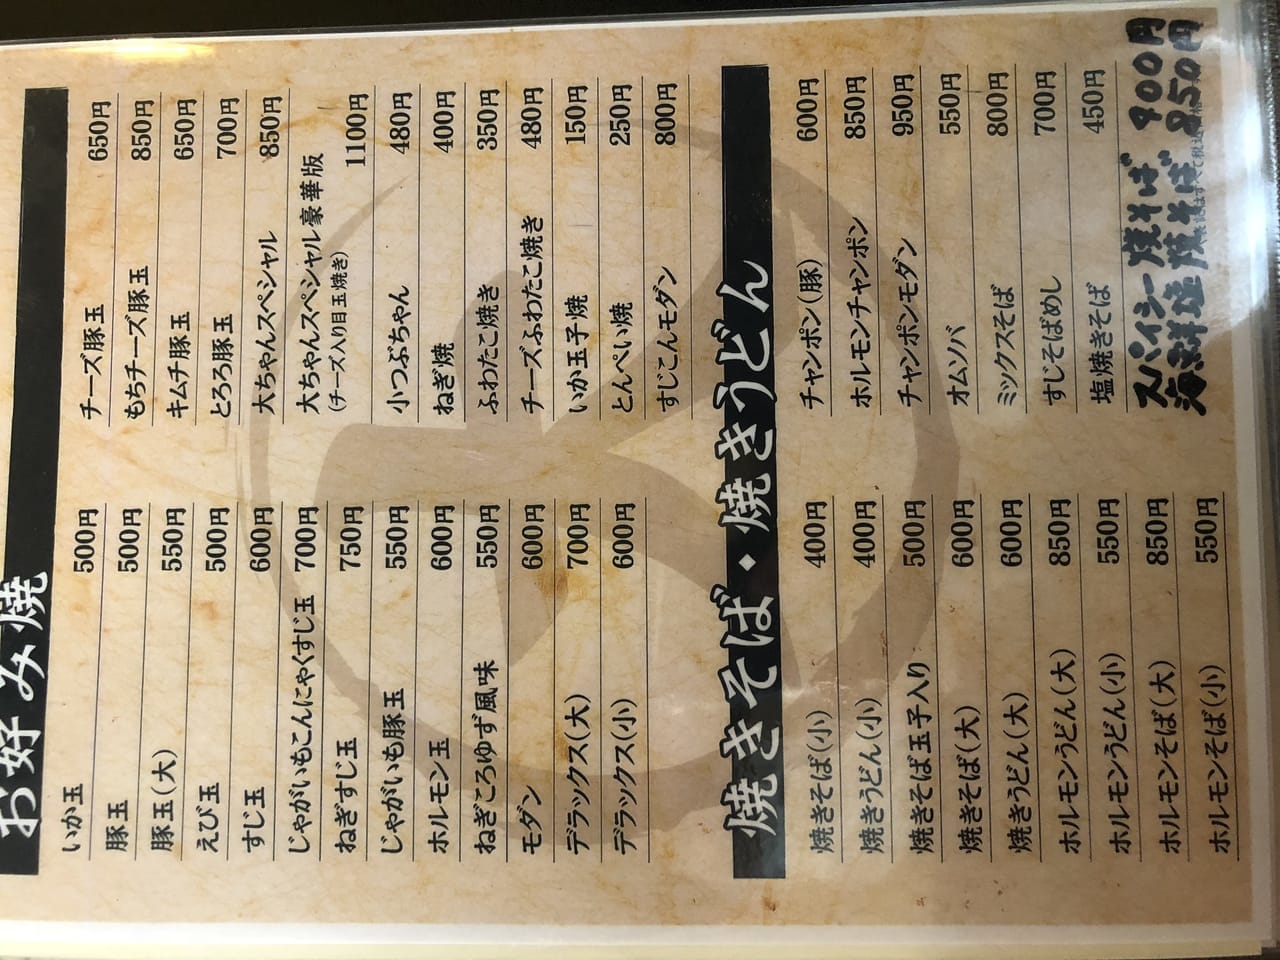 お好み焼
いか玉 500円
豚玉 500円
豚玉(大) 550円
えび玉 500円
すじ玉 600円
じゃがいもこんにゃくすじ玉 700円
ねぎすじ玉 750円
じゃがいも豚玉 550円
ホルモン玉 600円
ねぎころゆず風味 550円
モダン 600円
デラックス(大) 700円
デラックス(小) 600円
チーズ豚玉 650円
もちチーズ豚玉 850円
キムチ豚玉 650円
とろろ豚玉 700円
大ちゃんスペシャル 850円
大ちゃんスペシャル豪華版
(チーズ入り目玉焼き) 1100円
小つぶちゃん 480円
ねぎ焼 400円
ふわたこ焼き 350円
チーズふわたこ焼き 480円
いか玉子焼 150円
とんぺい焼 250円
すじこんモダン 800円
焼きそば・焼きうどん
焼きそば(小) 400円
焼きうどん(小) 400円
焼きそば玉子入り 500円
焼きそば(大) 600円
焼きうどん(大) 600円
ホルモンうどん(大) 850円
ホルモンうどん(小) 550円
ホルモンそば(大) 850円
ホルモンそば(小) 550円
チャンポン(豚) 600円
ホルモンチャンポン 850円
チャンポンモダン 950円
オムソバ 550円
ミックスそば 800円
すじそばめし 700円
塩焼きそば 450円
スパイシー焼そば 900円
海鮮塩焼そば 850円